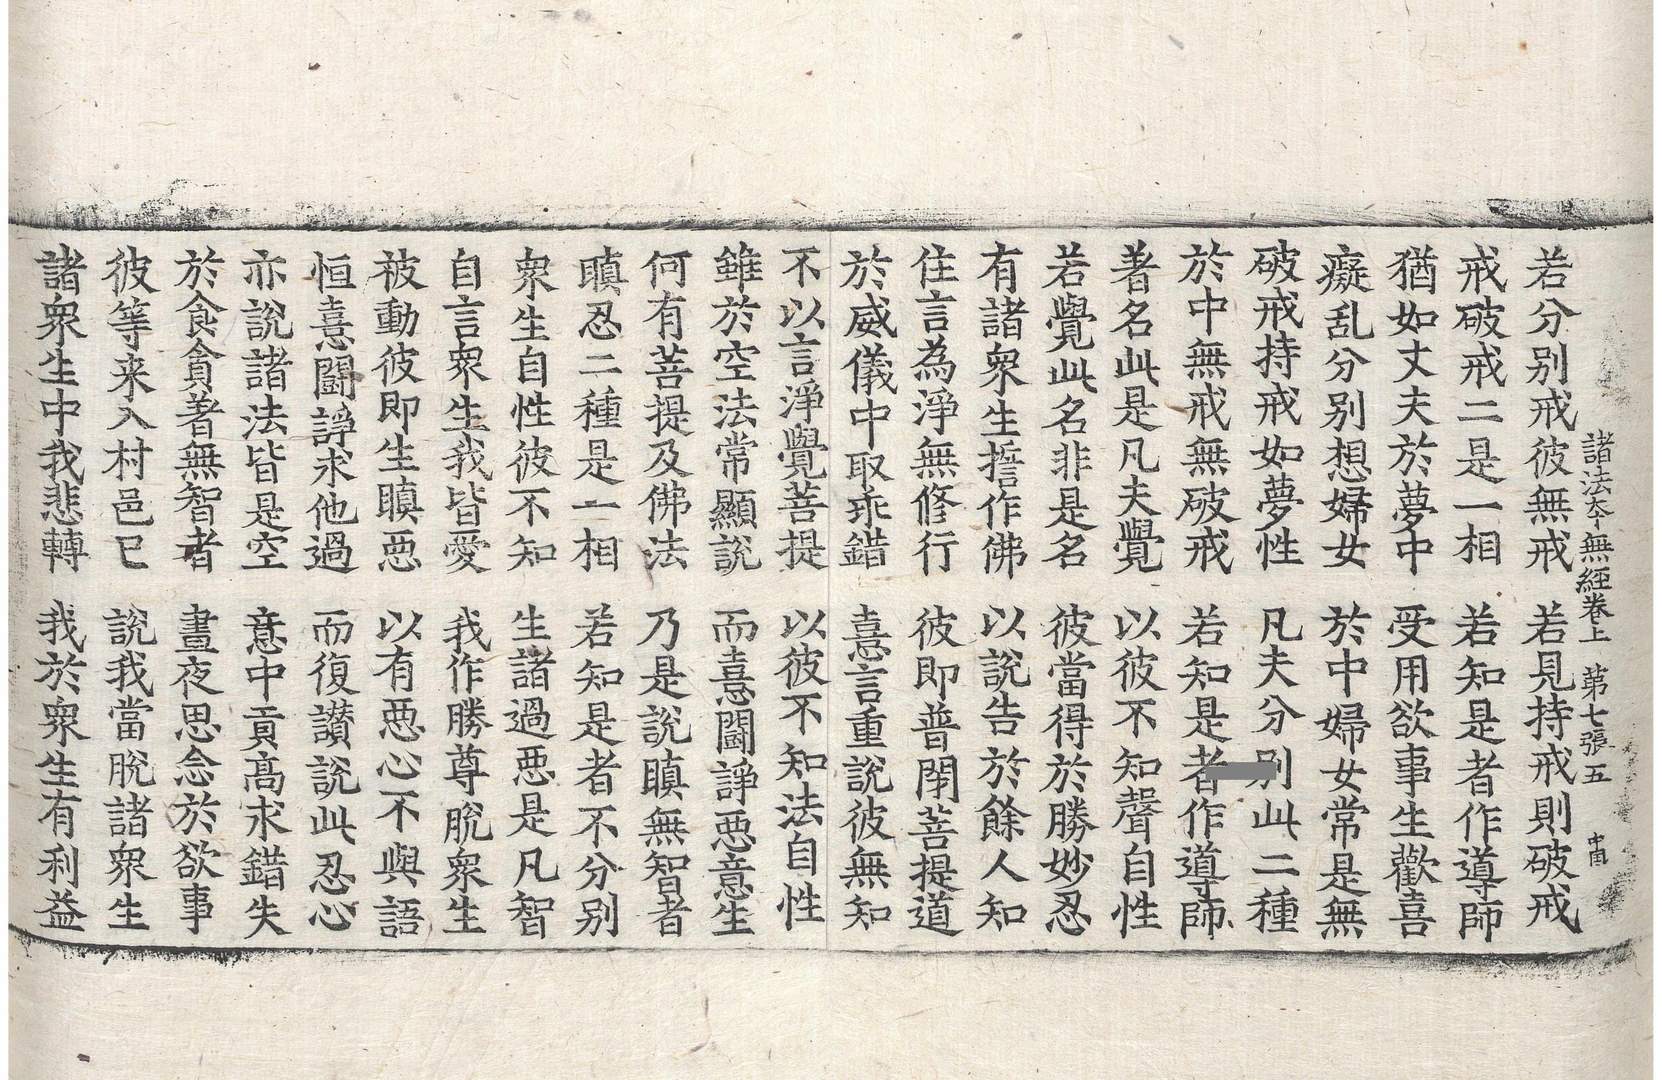 諸法夲無經卷上 第七張 五
若分別戒彼無戒 若見持戒則破戒
戒破戒二是一相 若知是者作導師
猶如丈夫於夢中 受用欲事生歡喜
癡乱分別想婦女 於中婦女常是無
破戒持戒如夢性 凡夫分別此二種
於中無戒無破戒 若知是者作導師
著名此是凡夫覺 以彼不知聲自性
若覺此名非是名 彼當得於勝妙忍
有諸衆生誓作佛 以說告於餘人知
住言為淨無修行 彼即普閇菩提道
於威儀中取乖錯 憙言重說彼無知
不以言淨覺菩提 以彼不知法自性
雖於空法常顯說 而憙鬪諍惡意生
何有菩提及佛法 乃是說瞋無智者
瞋忍二種是一相 若知是者不分别
衆生自性彼不知 生諸過惡是凡智
自言衆生我皆愛 我作勝尊脫衆生
被動彼即生瞋惡 以有惡心不與語
恒憙鬪諍求他過 而復讃說此忍心
亦說諸法皆是空 意中貢髙求錯失
於食貪著無智者 晝夜思念於欲事
彼等来入村邑已 說我當脫諸衆生
諸衆生中我悲轉 我於衆生有利益